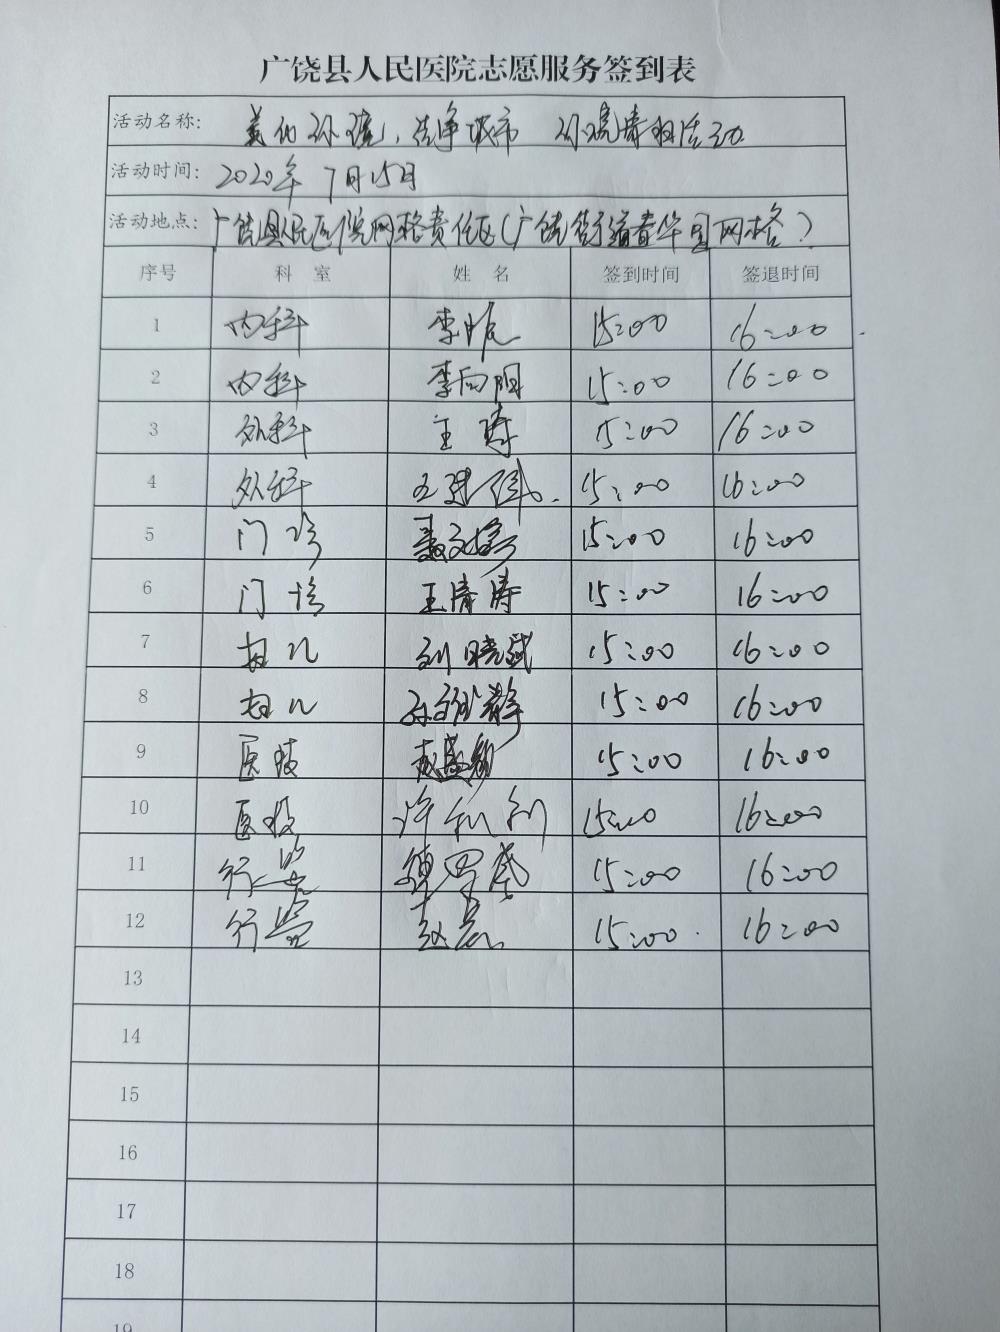 广饶县人民医院志愿服务签到表
活动名称: 美化环境,洁净城市 环境清扫活动
活动时间: 2020年7月15日
活动地点: 广饶县人民医院网格责任区(广饶街道春华园网格)
序号 科室 姓名 签到时间 签退时间
1 内科 15:00 16:00
2 内科 李向阳 15:00 16:00
3 外科 王涛 15:00 16:00
4 外科 15:00 16:00
5 门诊 15:00 16:00
6 门诊 王清涛 15:00 16:00
7 妇儿 15:00 16:00
8 妇儿 15:00 16:00
9 医技 15:00 16:00
10 医技 许利利 15:00 16:00
11 行 15:00 16:00
12 行 15:00 16:00
13
14
15
16
17
18
19